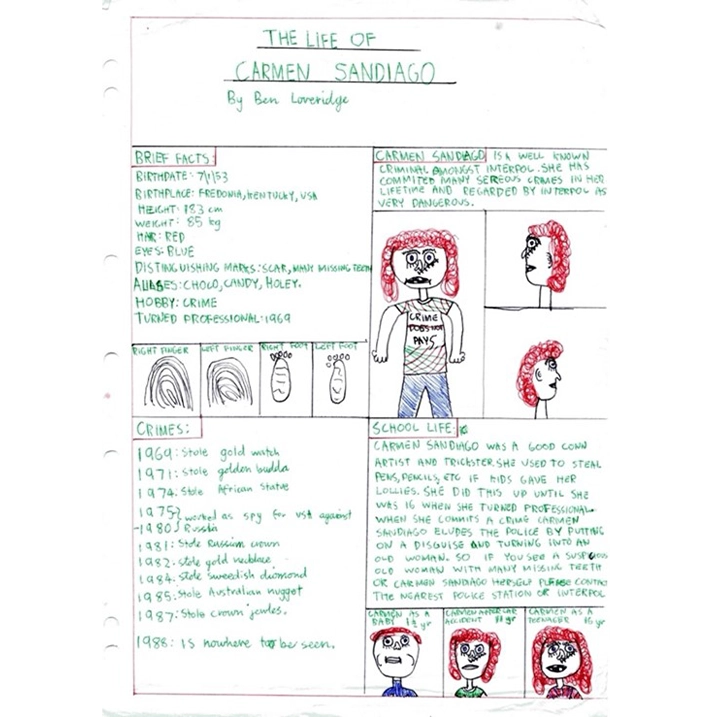 THE LIFE OF
CARMEN SANDIAGO
By Ben Loveridge
BRIEF FACTS:
BIRTHDATE: 7/1/53
BIRTHPLACE: FREDONIA, KENTUCKY, USA
HEIGHT: 183 cm
WEIGHT: 85 kg
HAIR: RED
EYES: BLUE
DISTINGUISHING MARKS: SCAR, MANY MISSING TEETH
ALIASES: CHOCO, CANDY, HOLEY.
HOBBY: CRIME
TURNED PROFESSIONAL: 1969
RIGHT FINGER
LEFT FINGER
RIGHT FOOT
LEFT FOOT
CARMEN SANDIAGO IS A WELL KNOWN
CRIMINAL AMONGST INTERPOL. SHE HAS
COMMITED MANY SEREOUS CRIMES IN HER
LIFETIME AND REGARDED BY INTERPOL AS
VERY DANGEROUS.
CRIME
DOES NOT
PAYS
CRIMES:
1969: Stole gold watch
1971: Stole golden budda
1974: Stole African Statue
1975
-1980 worked as spy for USA against
Russia
1981: Stole Russian crown
1982: Stole gold necklace
1984: Stole sweedish diamond
1985: Stole Australian nugget
1987: Stole crown jewles.
1988: IS nowhere to be seen.
SCHOOL LIFE:
CARMEN SANDIAGO WAS A GOOD CONN
ARTIST AND TRICKSTER. SHE USED TO STEAL
PENS, PENCILS, ETC IF KIDS GAVE HER
LOLLIES. SHE DID THIS UP UNTIL SHE
WAS 16 WHEN SHE TURNED PROFESSIONAL.
WHEN SHE COMMITS A CRIME CARMEN
SANDIAGO ELUDES THE POLICE BY PUTTING
ON A DISGUISE AND TURNING INTO AN
OLD WOMAN. SO IF YOU SEE A SUSPICIOUS
OLD WOMAN WITH MANY MISSING TEETH
OR CARMEN SANDIAGO HERSELF PLEASE CONTAC
THE NEAREST POLICE STATION OR INTERPOL
CARMEN AS A
BABY 1½ yr
CARMEN AFTER CAR
ACCIDENT yr
CARMEN AS A
TEENAGER 16 yr